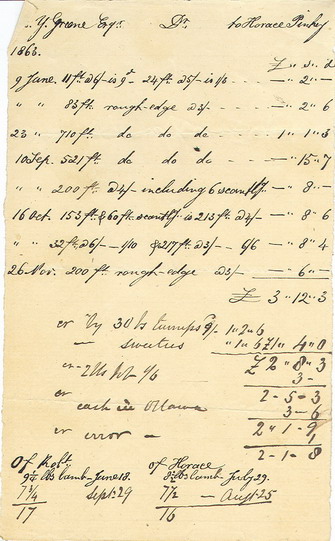 Y Greene Esqr. Dr. to Horace Pinhey
1863. £ " s " d
9 June. 11 ft @6/- is 9d - 24 ft @5/- is 1/3 - - - " 2 " -
" " 83 ft rough-edge @3/- - - - " 2 " 6
23 " 710 ft do do do - 1 " 1 " 3
10 Sep. 521 ft. do do do - - " 15 " 7
" " 200 ft @4/- including 6 scantlgs - " 8 " -
16 Oct. 153 ft & 60 ft scantlg is 213 ft @4/- - " 8 " 6
" " 32 ft @6/- - 1/10 & 217 ft @3/- - - 6/6 - " 8 " 4
26 Nov. 200 ft rough-edge @3/- - " 6 " -
£ 3 " 12 " 3
cr By 30 lbs turnips 9/- 1 " 2 " 6
— sweeties " 1 " 6 £1 " 4 " 0
£ 2 " 8 " 3
cr 3 -
2 - 5 - 3
cr cash in Ottawa 3 - 6
2 " 1 - 9
cr error - 1
2 - 1 - 8
Of Robt. of Horace
9 1/4 lbs lamb - June 18. 8 1/2 lbs lamb - July 29.
7 3/4 Sept. 29 7 1/2 — Augt. 25
17 16